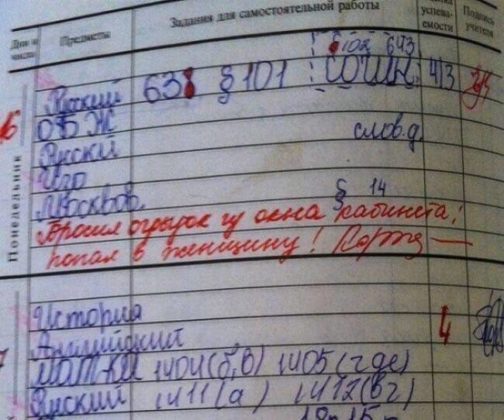 Дни и числа Предметы Задания для самостоятельной работы успева-емости Подпись учителя
§ 102 643
Русский 638 § 101 сочин 4/3
ОБЖ
Русский слов.д.
Изо
Москвов. § 14
Понедельник
Бросил огрызок из окна кабинета,
попал в женщину!
История
Английский 4
Мат-ка 1404(б,в) 1405(где)
Русский 1411(а) 1412(вг)